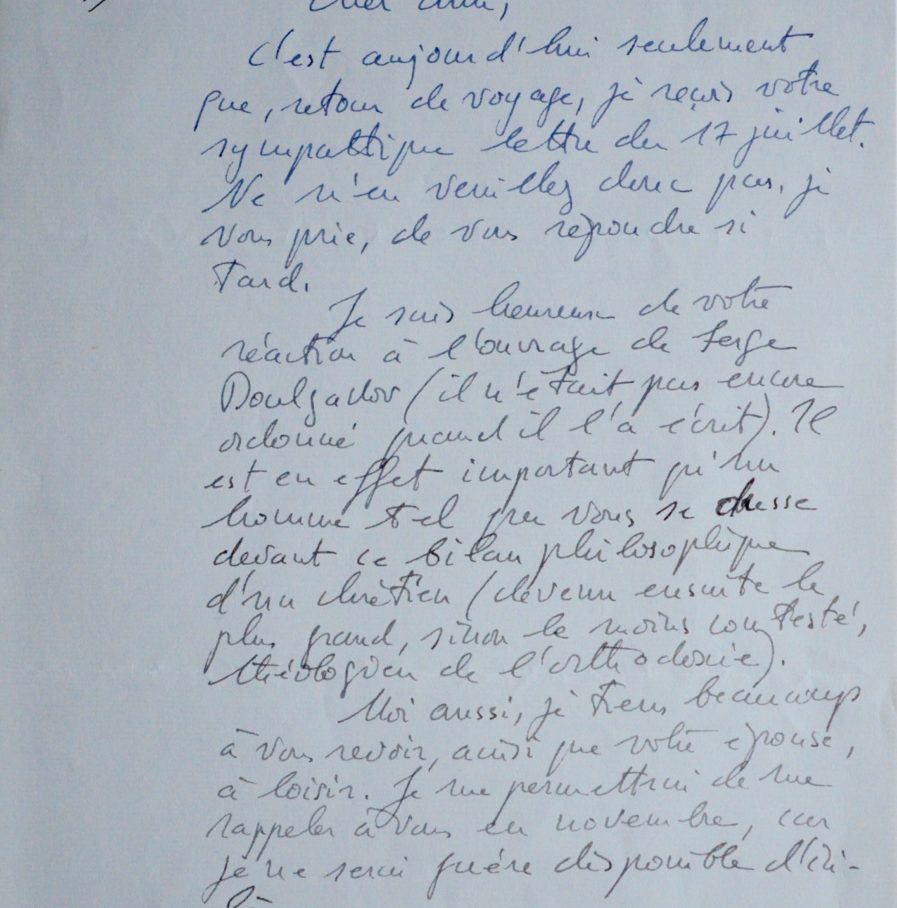 Cher Ami,
C'est aujourd'hui seulement
que, retour de voyage, je reçois votre
sympathique lettre du 17 juillet.
Ne m'en veuillez donc pas, je
vous prie, de vous répondre si
tard.
Je suis heureux de votre
réaction à l'ouvrage de Serge
Boulgakov (il n'était pas encore
ordonné quand il l'a écrit). Il
est en effet important qu'un
homme tel que vous se dresse
devant ce bilan philosophique
d'un chrétien (devenu ensuite le
plus grand, sinon le moins contesté,
théologien de l'orthodoxie).
Moi aussi, je tiens beaucoup
à vous revoir, ainsi que votre épouse,
à loisir. Je me permettrai de me
rappeler à vous en novembre, car
je ne serai guère disponible d'ici-
là